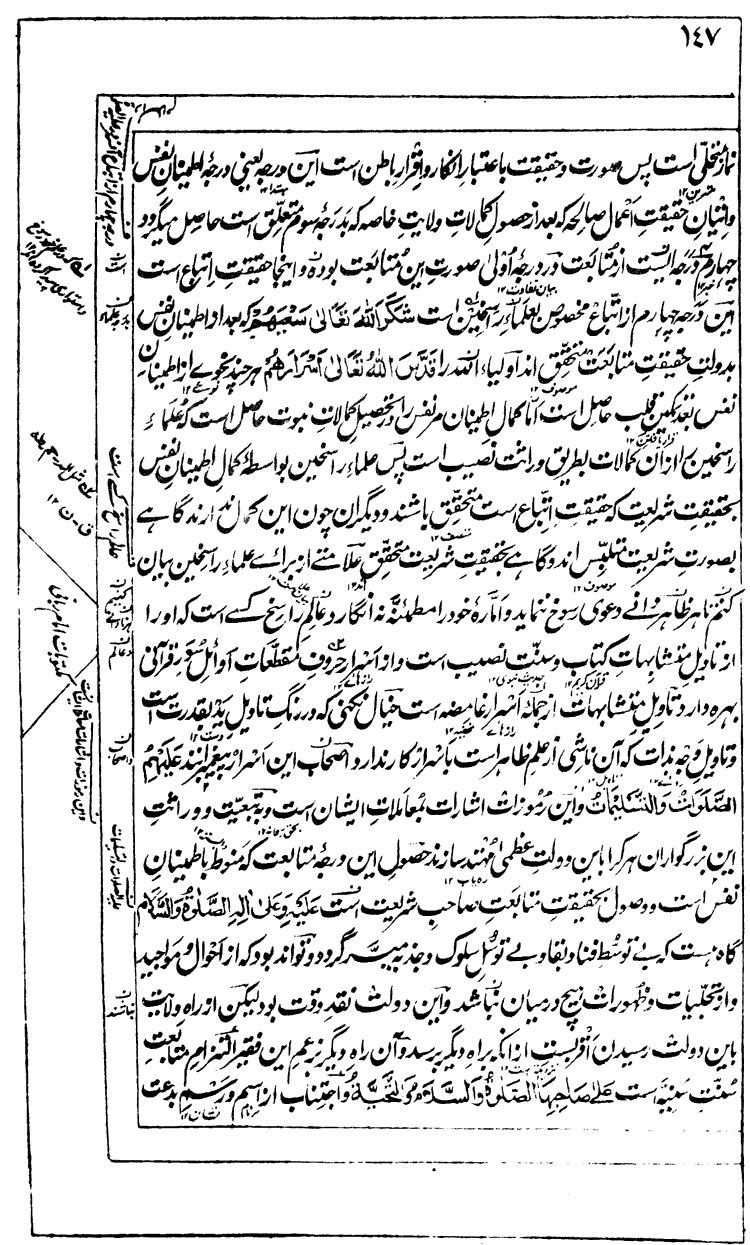 ١٤٧
نماز متخلی است پس صورت و حقیقت باعتبار انکار و اقرار باطن است این درجه یعنی درجۂ اطمینان نفس
و اتیان حقیقت اعمال صالحه که بعد از حصول کمالات ولایت خاصه که بدرجۂ سوم متعلق است حاصل میگردد
چهارم درجه ایست از متابعت در درجۂ اولی صورت این متابعت بوده و اینجا حقیقت اتباع است
این درجۂ چهارم از اتباع مخصوص بعلماء راسخین است شَکَرَ اللهُ تَعَالٰی سَعْیَهُمْ که بعد از اطمینان نفس
بدولت حقیقت متابعت متحقق اند اولیاء الله را قَدَّسَ اللهُ تَعَالٰی اَسْرَارَهُمْ هر چند نحوے از اطمینان
نفس بعد تمکین قلب حاصل است امّا کمال اطمینان مر نفس را در تحصیل کمالات نبوت حاصل است که علماء
راسخین را از آن کمالات بطریق وراثت نصیب است پس علماء راسخین بواسطۂ کمال اطمینان نفس
بحقیقت شریعت که حقیقت اتباع است متحقق باشند و دیگران چون این کمال ندارند گاهے
بصورت شریعت متلبس اند و گاهے بحقیقت شریعت متحقق علامتے از براے علماء راسخین بیان
کنم تا هر ظاهر دانے دعوی رسوخ ننماید و امّارۂ خود را مطمئنّه نه انگارد عالم راسخ کسے است که او را
از تاویل متشابهات کتاب و سنّت نصیب است و از اسرار حروف مقطّعات اوائل سُوَر قرآنی
بهره دارد و تاویل متشابهات از جملۂ اسرار غامضه است خیال نکنی که در رنگ تاویل ید بقدرت است
و تاویل وجه بذات که آن ناشی از علم ظاهر است باسرار کار ندارد اصحاب این اسرار پیغمبرانند عَلَیْهِمُ
الصَّلَوَاتُ وَالتَّسْلِیْمَاتُ و این رموزات اشارات بمعاملات ایشان است و بتبعیّت و وراثت
این بزرگواران هر کرا باین دولت عظمی مهتد سازند حصول این درجۂ متابعت که منوط باطمینان
نفس است و وصول بحقیقت متابعت صاحب شریعت است عَلَیْهِ وَعَلٰی اٰلِهِ الصَّلٰوةُ وَالسَّلَامُ
گاه هست که بے توسّط فنا و بقا و بے توسّل سلوک و جذبه میسّر گردد و تواند بود که از احوال و مواجید
و از تجلیات و ظهورات هیچ درمیان نباشد و این دولت نقد وقت بود لیکن از راه ولایت
باین دولت رسیدن اقرب است از آنکه براه دیگر برسد و آن راه دیگر بزعم این فقیر التزام متابعت
سنّت سنیّه است عَلٰی صَاحِبِهَا الصَّلٰوةُ وَالسَّلَامُ وَالتَّحِیَّةُ و اجتناب از اسم و رسم بدعت
عالم راسخ کسے است
مکتوبات امام ربانی
علیهم الصلوات والتسلیمات